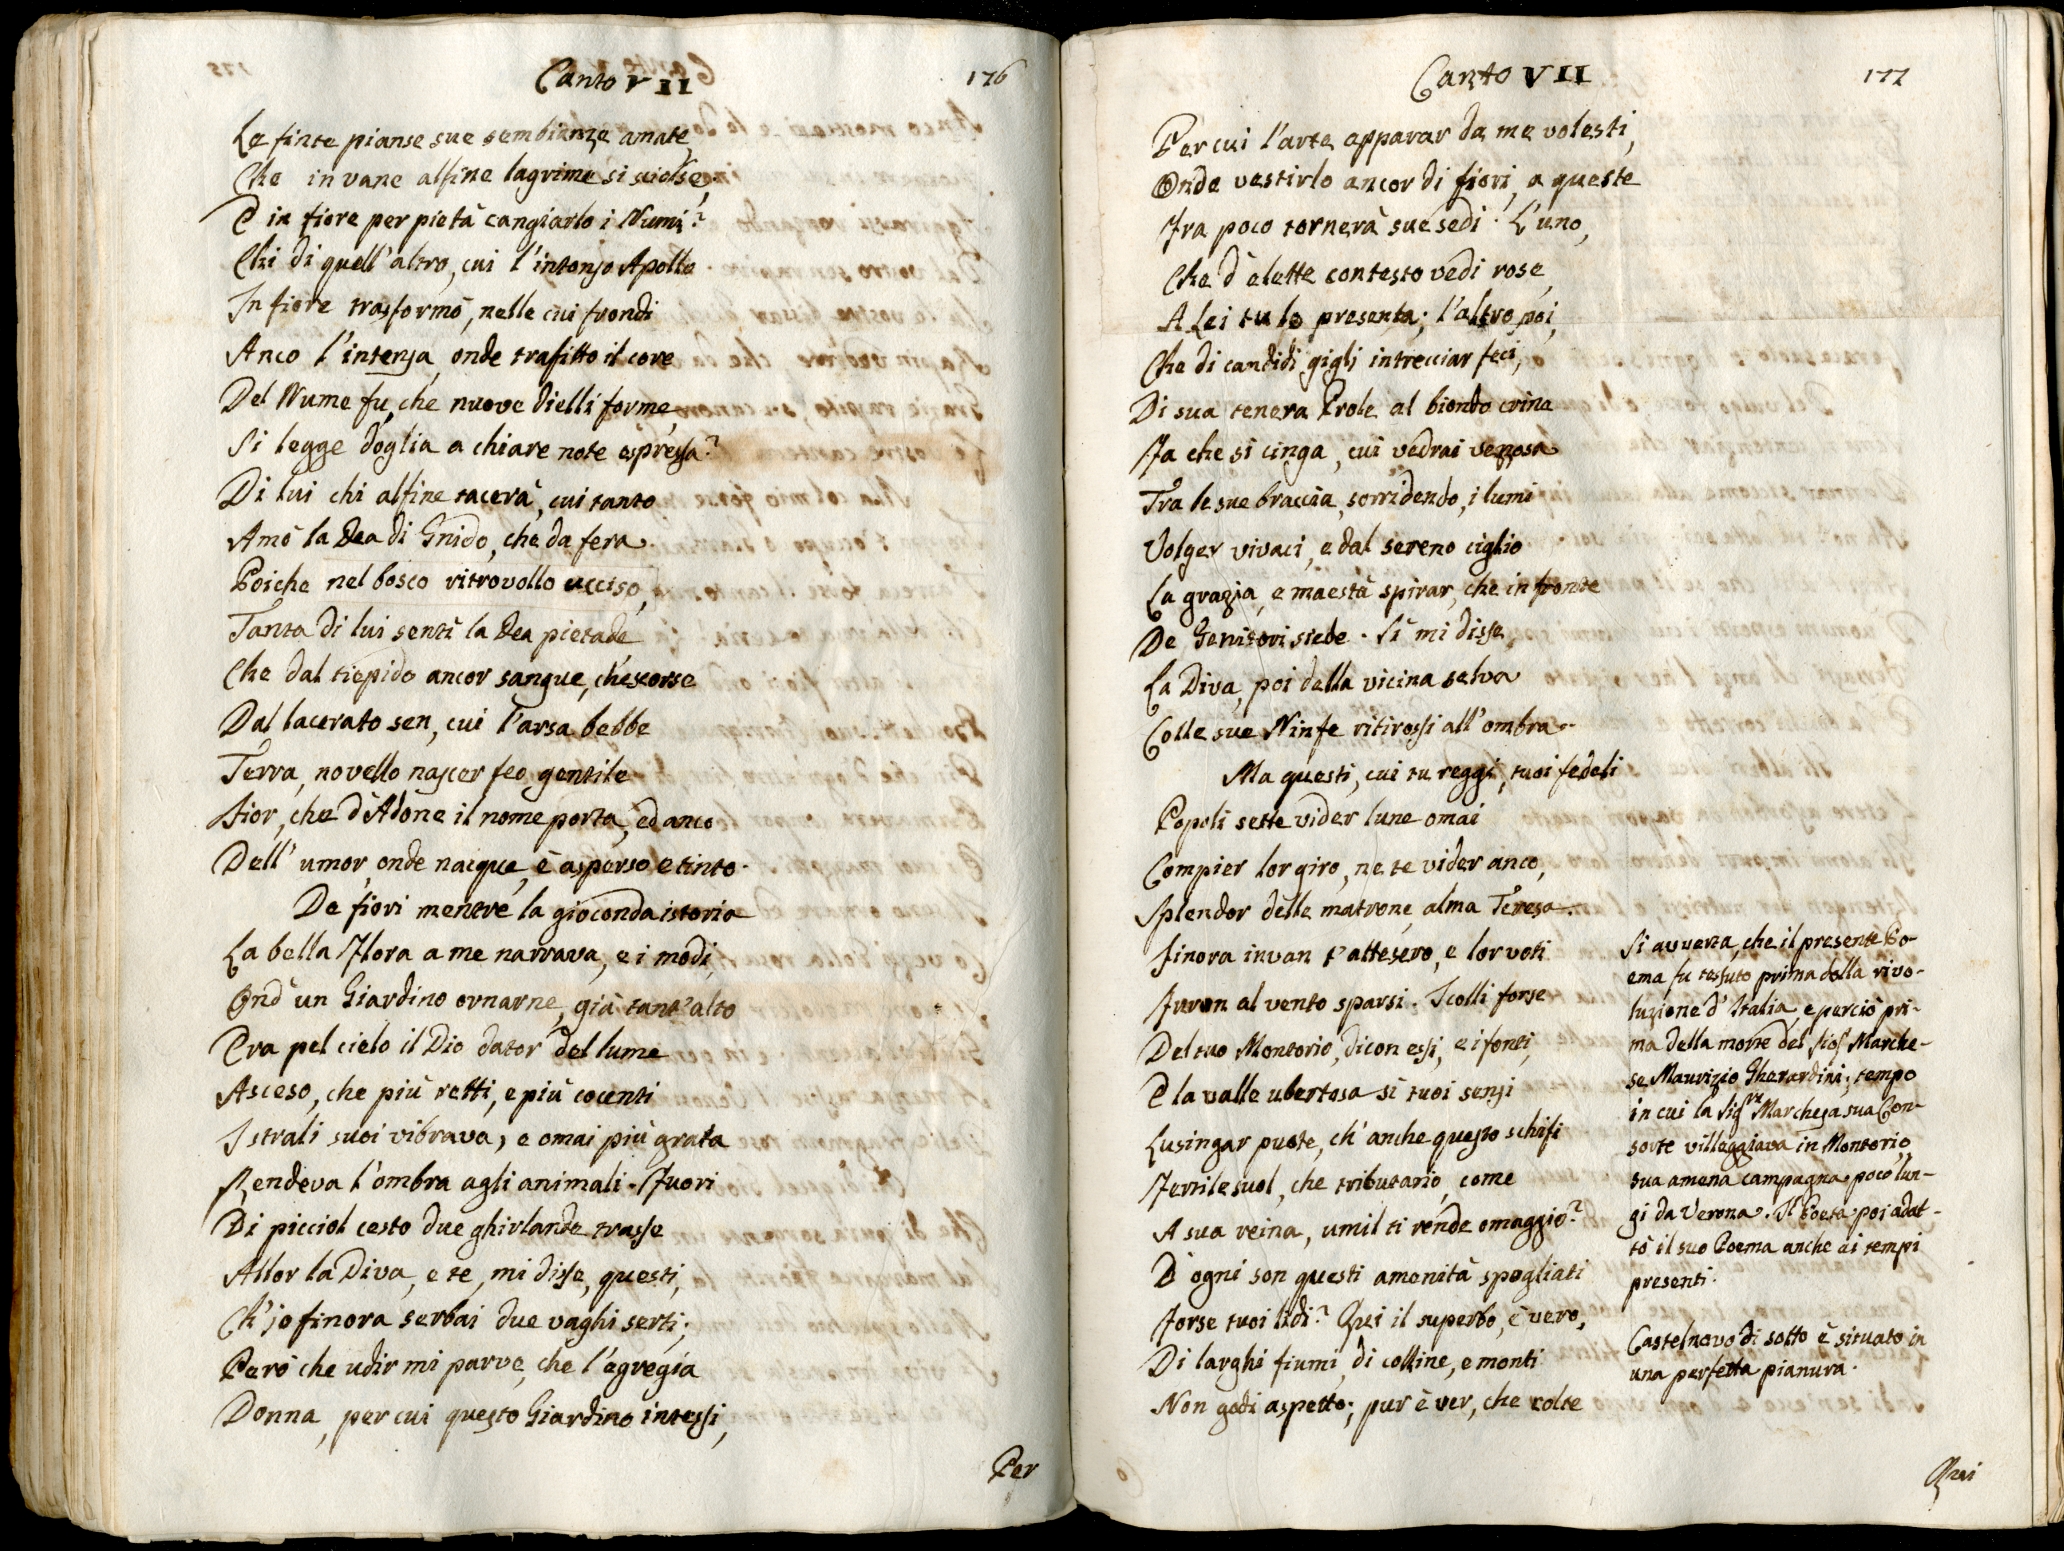 Canto VII
176
Le finte pianse sue sembianze amate,
Che in vane alfine lagrime si sciolse,
E in fiore per pietà cangiarlo i Numi?
Chi di quell'altro, cui l'intonso Apollo
In fiore trasformò, nelle cui frondi
Anco l'intensa, onde trafitto il core
Del Nume fu, che nuove dielli forme,
Si legge doglia a chiare note espressa?
Di lui chi alfine tacerà, cui tanto
Amò la Dea di Gnido, che da fera
Poiche nel bosco ritrovollo ucciso,
Tanta di lui sentì la Dea pietade,
Che dal tiepido ancor sangue, che scorse
Dal lacerato sen, cui l'arsa bebbe
Terra, novello nascer feo gentile
Fior, che d'Adone il nome porta, ed anco
Dell'umor, onde nacque, è asperso e tinto.
De fiori mentre la gioconda istoria
La bella Flora a me narrava, e i modi,
Ond'un Giardino ornarne, già tant'alto
Era pel cielo il Dio dator del lume
Asceso, che più retti, e più cocenti
I strali suoi vibrava, e omai più grata
Rendeva l'ombra agli animali. Fuori
Di picciol cesto due ghirlande trasse
Allor la Diva, e te, mi disse, questi,
Ch'io finora serbai due vaghi serti;
Però che udir mi parve, che l'egregia
Donna, per cui questo Giardino intessi,
Per
Canto VII
177
Per cui l'arte apparar da me volesti,
Onde vestirlo ancor di fiori, a queste
Fra poco tornerà sue sedi. L'uno,
Che d'elette contesto vedi rose,
A Lei tu lo presenta; l'altro poi,
Che di candidi gigli intrecciar feci,
Di sua tenera Prole al biondo crine
Fa che si cinga, cui vedrai vezzosa
Tra le sue braccia, sorridendo, i lumi
Volger vivaci, e dal sereno ciglio
La grazia, e maestà spirar, che in fronte
De Genitori siede. Sì mi disse
La Diva, poi della vicina selva
Colle sue Ninfe ritirossi all'ombra.
Ma questi, cui tu reggi, tuoi fedeli
Popoli sette vider lune omai
Compier lor giro, ne te vider anco,
Splendor delle matrone, alma Teresa.
Finora invan t'attesero, e lor voti
Furon al vento sparsi. I colli forse
Del tuo Montorio, dicon essi, e i fonti,
E la valle ubertosa sì tuoi sensi
Lusingar puote, ch'anche questo schifi
Fertile suol, che tributario, come
A sua reina, umil ti rende omaggio?
D'ogni son questi amenità spogliati
Forse tuoi lidi? Qui il superbo, è vero,
Di larghi fiumi, di colline, e monti
Non godi aspetto; pur è ver, che colte
Si avverta, che il presente Po-
ema fu tessuto prima della rivo-
luzione d'Italia, e perciò pri-
ma della morte del Sigr Marche-
se Maurizio Gherardini; tempo
in cui la Sigra Marchesa sua Con-
sorte villeggiava in Montorio,
sua amena campagna poco lun-
gi da Verona. Il Poeta poi adat-
tò il suo Poema anche ai tempi
presenti.
Castelnovo di sotto è situato in
una perfetta pianura.
Qui